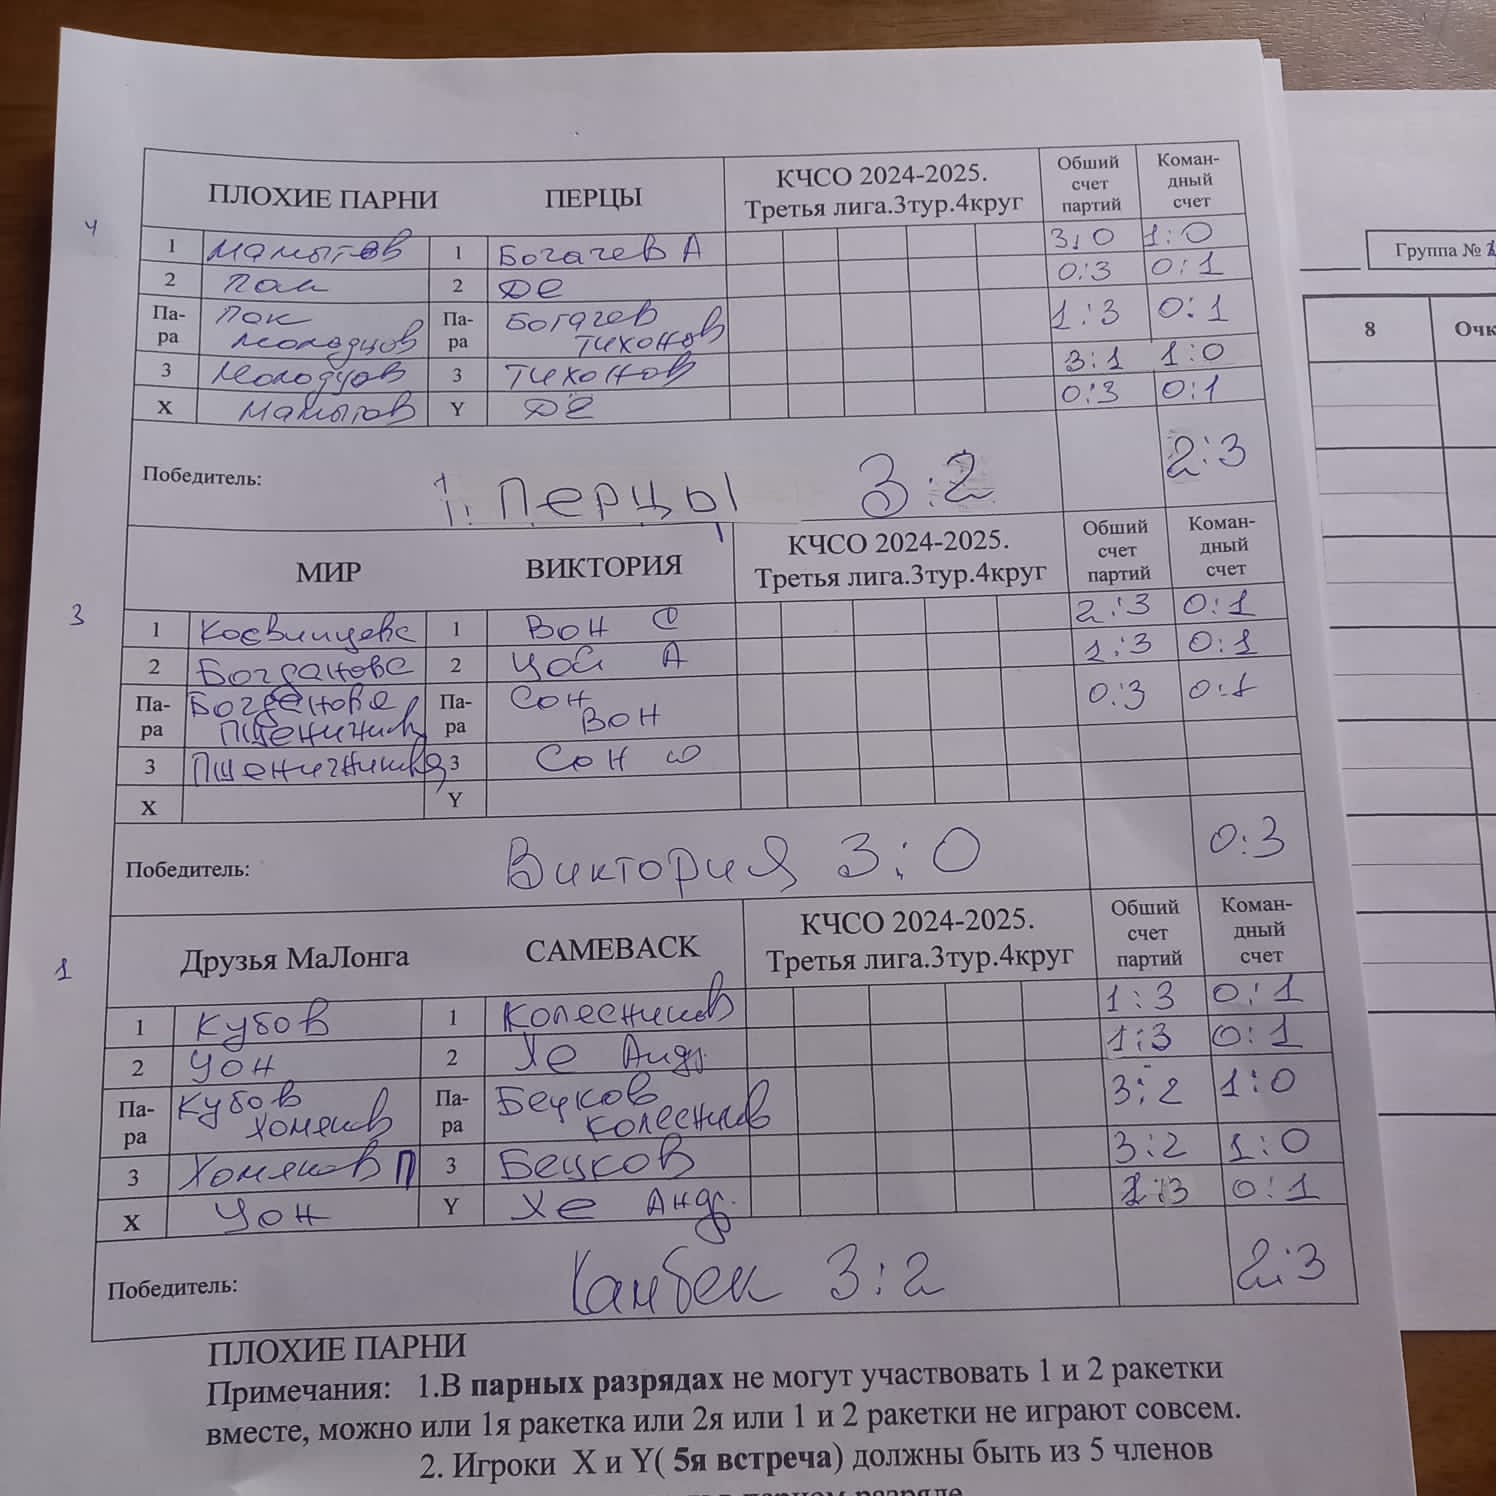 ПЛОХИЕ ПАРНИ ПЕРЦЫ КЧСО 2024-2025. Третья лига.3тур.4круг Обший счет партий Коман-дный счет
4
1 Мамытов 1 Богачев А 3:0 1:0
2 Пак 2 Дё 0:3 0:1
Па-ра Пак Молодцов Па-ра Богачев Тихонов 1:3 0:1
3 Молодцов 3 Тихонов 3:1 1:0
X Мамытов Y Дё 0:3 0:1
Победитель: Перцы 3:2 2:3
МИР ВИКТОРИЯ КЧСО 2024-2025. Третья лига.3тур.4круг Обший счет партий Коман-дный счет
3
1 1 Вон С 2:3 0:1
2 Богданова 2 Цой А 1:3 0:1
Па-ра Богданова Па-ра Сон Вон 0:3 0:1
3 3 Сон
X Y
Победитель: Виктория 3:0 0:3
Друзья МаЛонга CAMEBACK КЧСО 2024-2025. Третья лига.3тур.4круг Обший счет партий Коман-дный счет
1
1 Кубов 1 Колесников 1:3 0:1
2 Чон 2 Хе Андр. 1:3 0:1
Па-ра Кубов Хомяков Па-ра Бецков Колесников 3:2 1:0
3 Хомяков П 3 Бецков 3:2 1:0
X Чон Y Хе Андр. 1:3 0:1
Победитель: Камбек 3:2 2:3
ПЛОХИЕ ПАРНИ
Примечания: 1.В парных разрядах не могут участвовать 1 и 2 ракетки
вместе, можно или 1я ракетка или 2я или 1 и 2 ракетки не играют совсем.
2. Игроки X и Y( 5я встреча) должны быть из 5 членов
парном разряде
Группа №
8 Очк